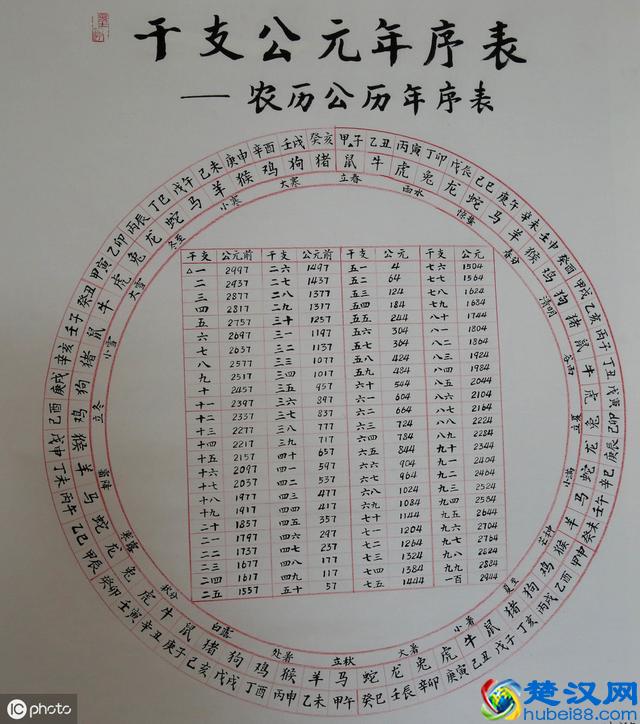 干支公元年序表
— 农历公历年序表
甲子 乙丑 丙寅 丁卯 戊辰 己巳 庚午 辛未 壬申 癸酉 甲戌 乙亥 丙子 丁丑 戊寅 己卯 庚辰 辛巳 壬午 癸未 甲申 乙酉 丙戌 丁亥 戊子 己丑 庚寅 辛卯 壬辰 癸巳 甲午 乙未 丙申 丁酉 戊戌 己亥 庚子 辛丑 壬寅 癸卯 甲辰 乙巳 丙午 丁未 戊申 己酉 庚戌 辛亥 壬子 癸丑 甲寅 乙卯 丙辰 丁巳 戊午 己未 庚申 辛酉 壬戌 癸亥
鼠 牛 虎 兔 龙 蛇 马 羊 猴 鸡 狗 猪 鼠 牛 虎 兔 龙 蛇 马 羊 猴 鸡 狗 猪 鼠 牛 虎 兔 龙 蛇 马 羊 猴 鸡 狗 猪 鼠 牛 虎 兔 龙 蛇 马 羊 猴 鸡 狗 猪 鼠 牛 虎 兔 龙 蛇 马 羊 猴 鸡 狗 猪
立春 雨水 惊蛰 春分 清明 谷雨 立夏 小满 芒种 夏至 小暑 大暑 立秋 处暑 白露 秋分 寒露 霜降 立冬 小雪 大雪 冬至 小寒 大寒
干支 公元前 干支 公元前 干支 公元 干支 公元
△一 2997 二六 1497 五一 4 七六 1504
二 2937 二七 1437 五二 64 七七 1564
三 2877 二八 1377 五三 124 七八 1624
四 2817 二九 1317 五四 184 七九 1684
五 2757 三十 1257 五五 244 八十 1744
六 2697 三一 1197 五六 304 八一 1804
七 2637 三二 1137 五七 364 八二 1864
八 2577 三三 1077 五八 424 八三 1924
九 2517 三四 1017 五九 484 八四 1984
十 2457 三五 957 六十 544 八五 2044
十一 2397 三六 897 六一 604 八六 2104
十二 2337 三七 837 六二 664 八七 2164
十三 2277 三八 777 六三 724 八八 2224
十四 2217 三九 717 六四 784 八九 2284
十五 2157 四十 657 六五 844 九十 2344
十六 2097 四一 597 六六 904 九一 2404
十七 2037 四二 537 六七 964 九二 2464
十八 1977 四三 477 六八 1024 九三 2524
十九 1917 四四 417 六九 1084 九四 2584
二十 1857 四五 357 七十 1144 九五 2644
二一 1797 四六 297 七一 1204 九六 2704
二二 1737 四七 237 七二 1264 九七 2764
二三 1677 四八 177 七三 1324 九八 2824
二四 1617 四九 117 七四 1384 九九 2884
二五 1557 五十 57 七五 1444 一百 2944
iC photo
楚汉网
hubei88.com